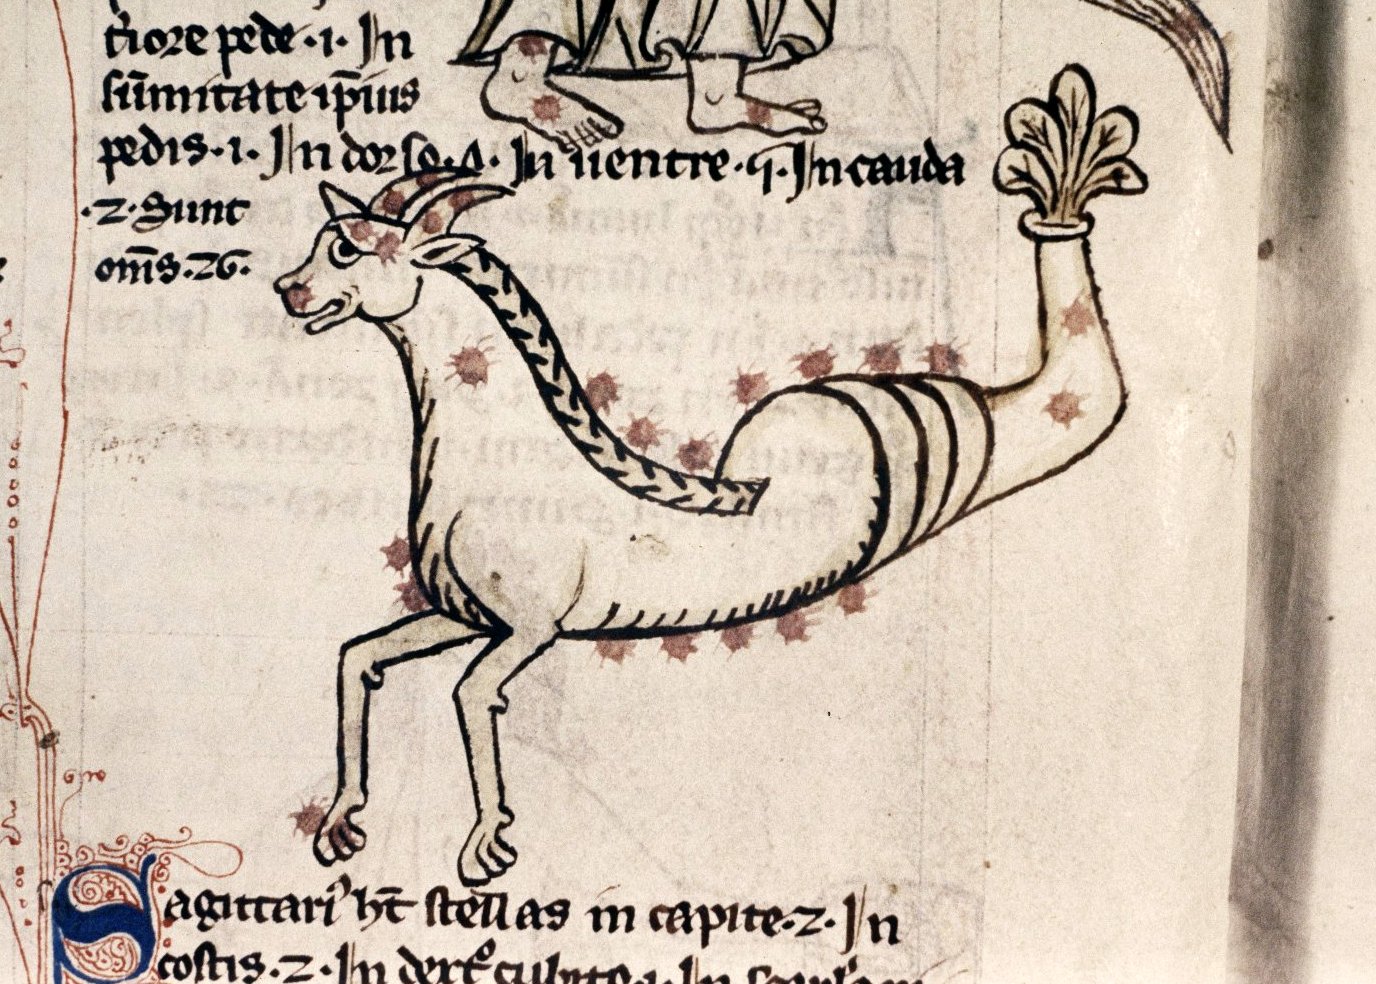 t'iore pede .1. In
sūmitate ip̄ius
pedis .1. In dorso .4. In uentre .9. In cauda
.2. Sunt
om̄s .26.
Sagittari⁹ hēt stellas in capite .2. In
costis .2. In dext° cubito .1. In